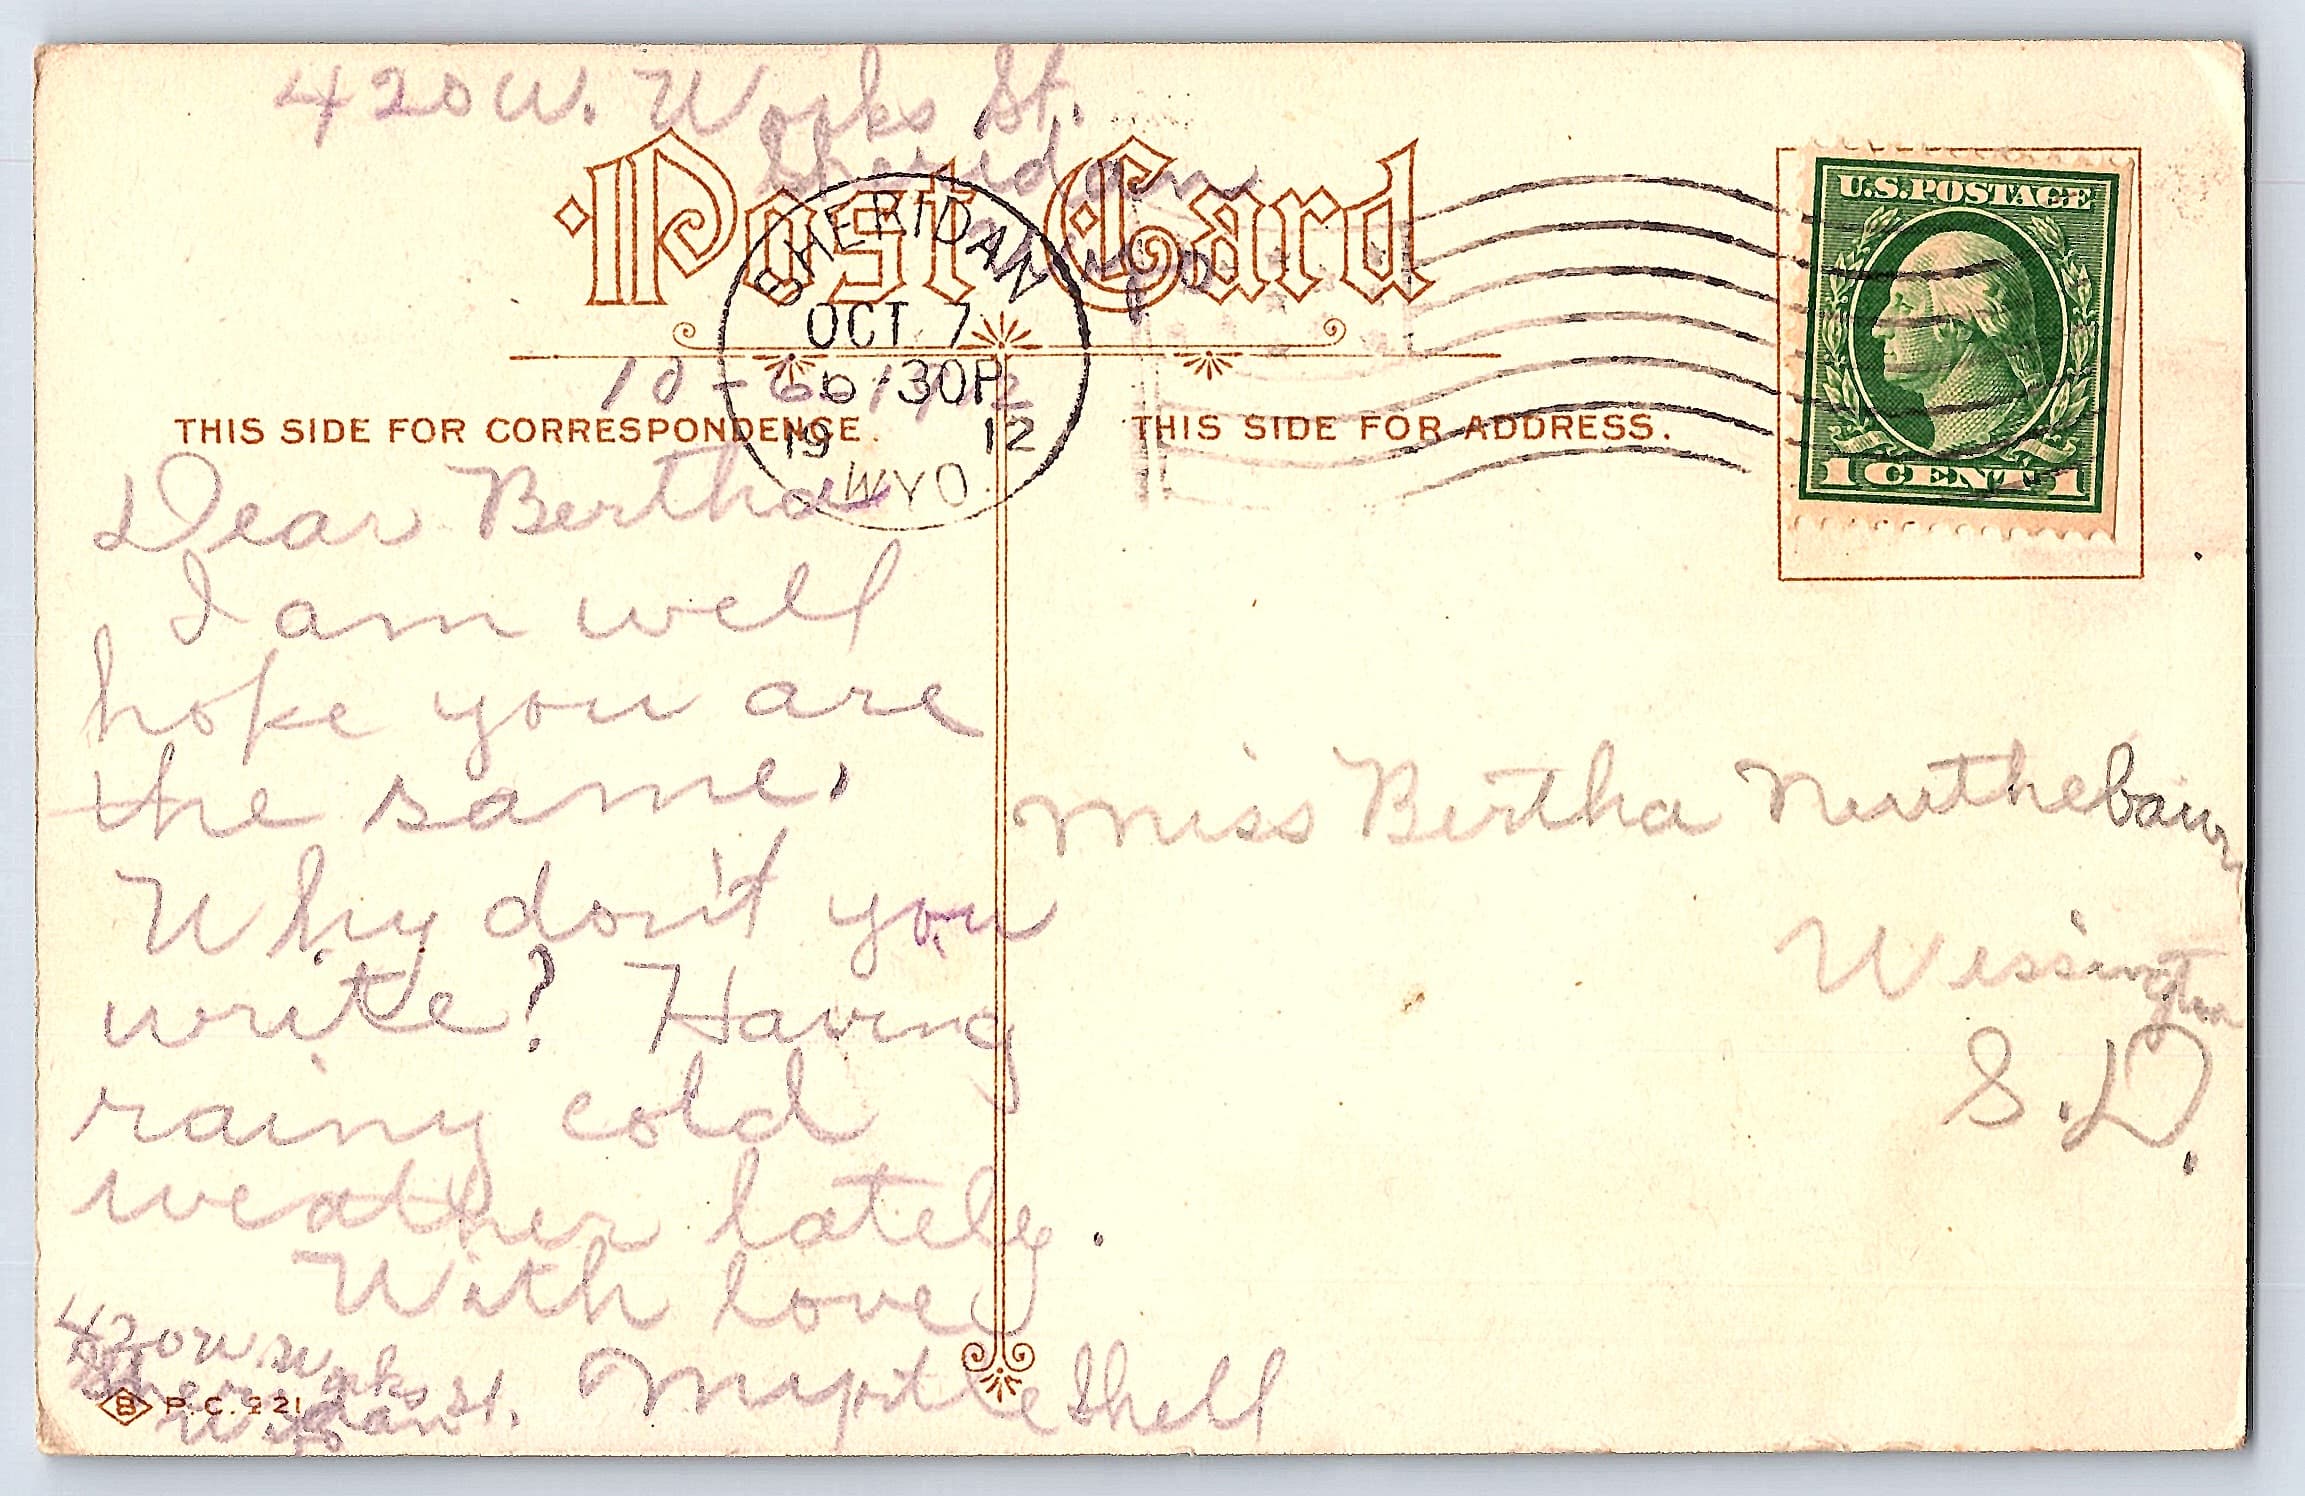 420 W. Works St.
Sheridan
Wyo
Post Card
SHERIDAN
OCT 7
6-30P
19 12
WYO.
10-6-1912
THIS SIDE FOR CORRESPONDENCE.
THIS SIDE FOR ADDRESS.
U.S.POSTAGE
1 CENT 1
Dear Bertha
I am well
hope you are
the same.
Why don't you
write? Having
rainy cold
weather lately.
With love
Myrtle Shell
420 W. Works St.
Sheridan
Wyo
B P.C. 221
Miss Bertha
Wessington
S.D.